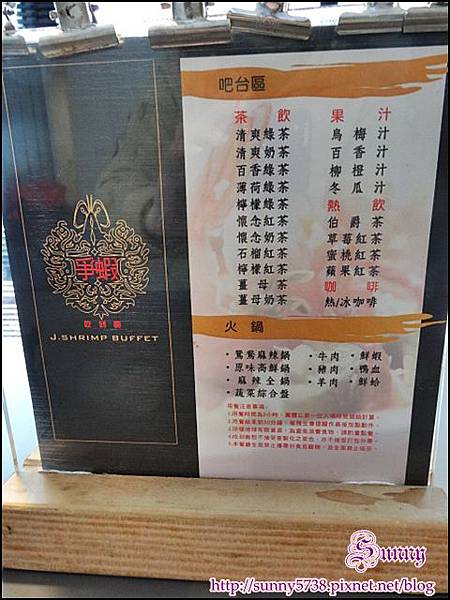 爭蝦
吃到飽
J.SHRIMP BUFFET
吧台區
茶飲
清爽綠茶
清爽奶茶
百香綠茶
薄荷綠茶
檸檬綠茶
懷念紅茶
懷念奶茶
石榴紅茶
檸檬紅茶
薑母茶
薑母奶茶
果汁
烏梅汁
百香汁
柳橙汁
冬瓜汁
熱飲
伯爵茶
草莓紅茶
蜜桃紅茶
蘋果紅茶
咖啡
熱/冰咖啡
火鍋
•鴛鴦麻辣鍋
•原味高鮮鍋
•麻辣全鍋
•蔬菜綜合盤
•牛肉
•豬肉
•羊肉
•鮮蝦
•鴨血
•鮮蛤
用餐注意事項:
Sunny
http://sunny5738.pixnet.net/blog